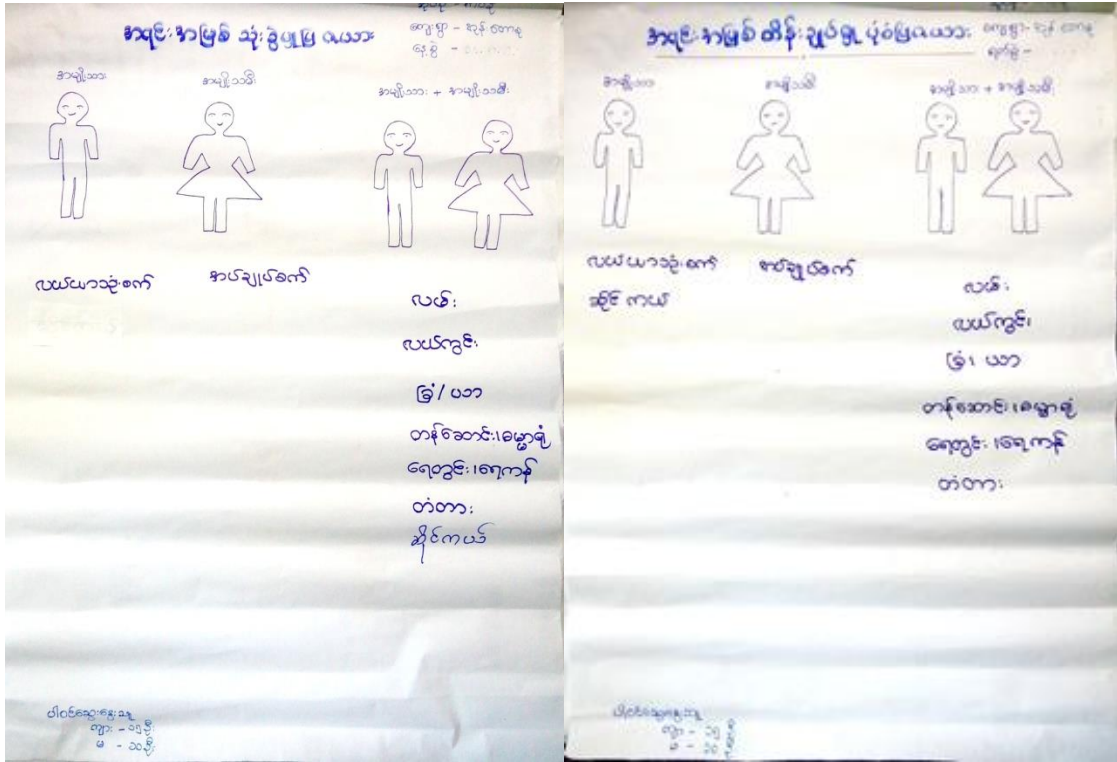 အရင်းအမြစ် သုံးစွဲမှုပြ ဇယား
ကျေးရွာ -
နေ့စွဲ -
အမျိုးသား
အမျိုးသမီး
အမျိုးသား + အမျိုးသမီး
လယ်ယာသုံးစက်
အပ်ချုပ်စက်
လမ်း
လယ်ကွင်း
ခြံ/ယာ
တန်ဆောင်း၊ဓမ္မာရုံ
ရေတွင်း၊ရေကန်
တံတား
ဆိုင်ကယ်
ပါဝင်ဆွေးနွေးသူ
ကျား - ၁၅ ဦး
မ - ၁၈ ဦး
အရင်းအမြစ်ထိန်းချုပ်မှု ပုံစံပြဇယား
ကျေးရွာ -
ရက်စွဲ -
အမျိုးသား
အမျိုးသမီး
အမျိုးသား + အမျိုးသမီး
လယ်ယာသုံးစက်
အပ်ချုပ်စက်
ဆိုင်ကယ်
လမ်း
လယ်ကွင်း
ခြံ၊ ယာ
တန်ဆောင်း၊ဓမ္မာရုံ
ရေတွင်း၊ရေကန်
တံတား
ပါဝင်ဆွေးနွေးသူ
ကျား - ၁၅